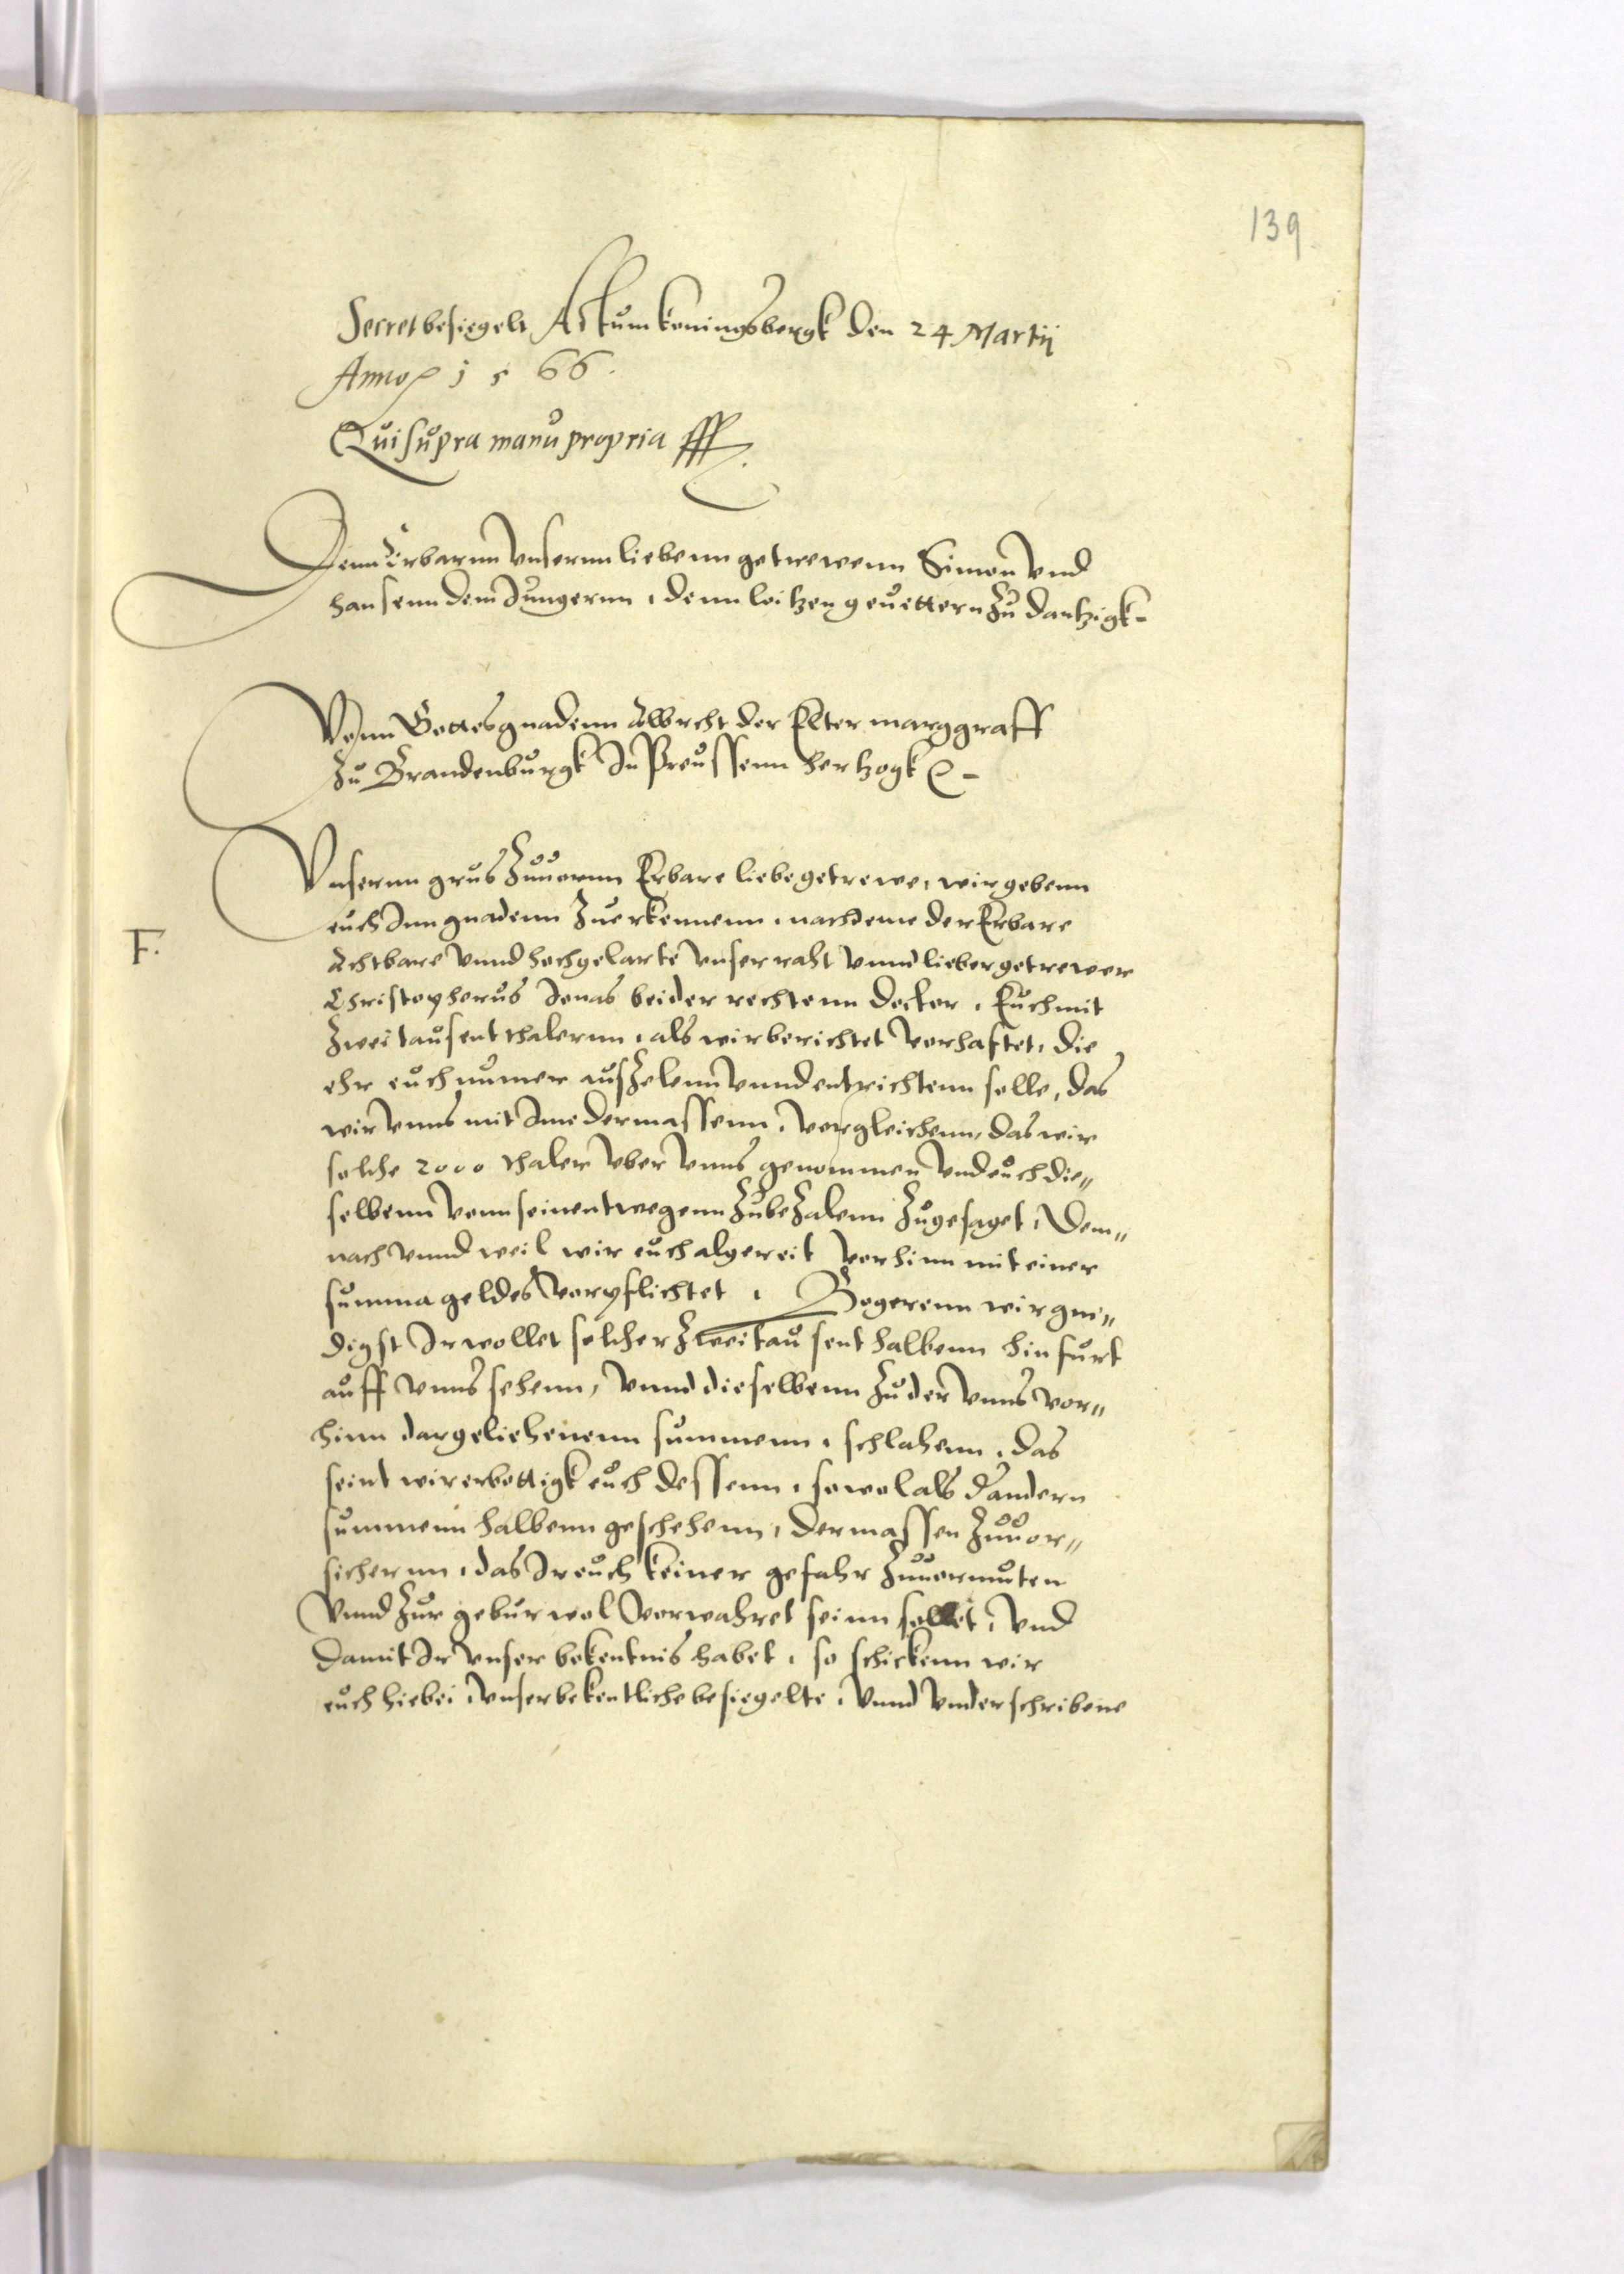 139
Secret besiegelt Actum Koningsbergk den 24 Martij
Anno 1566.
Qui supra manu propria
Denn Erbarnn vnsernn liebenn getrewenn Simon vnd
hansenn dem Jungernn, denn loitzen geuettern zu dantzigk
Vonn Gottes gnadenn Albrecht der Elter marggraff
zu Brandenburgk In Preussenn hertzogk
Vnsernn grus zuuornn Erbare liebe getrewe, wir gebenn
euch Inn gnadenn zuerkennenn, nachdeme der Erbare
F.
Achtbare vnnd hochgelarte vnser raht vnnd lieber getrewer
Christopherus Jonas beider rechtenn doctor, Euch mit
zweitausent thalernn, als wir berichtet vorhaftet, die
ehr euch numer auszelenn vnnd entrichtenn solle, das
wir vnns mit Ime dermassenn, vorgleichenn, das wir
solche 2000 thaler vber vnns genommen vnd euch die„
selbenn vonn seinentwegenn zubezalenn zugesaget, Dem„
nach vnnd weil wir euch algereit vorhinn mit einer
summa geldes vorpflichtet, Begerenn wir gne„
digst Ir wollet solcher zweitausent halbenn hinfurt
auff vnns sehenn, vnnd dieselbenn zu der vnns vor„
hinn dargeliehenenn summenn, schlahenn, das
seint wir erbottigk euch dessenn, sowol als dandern
summenn halbenn geschehenn, dermassen zuuor„
sichernn, das Ir euch keiner gefahr zuuormuten
vnnd zur gebur wol vorwahret seinn sollet, Vnd
damit Ir vnser bekentnis habet, so schickenn wir
euch hiebei, vnser bekentliche besiegelte, vnnd vnderschribene